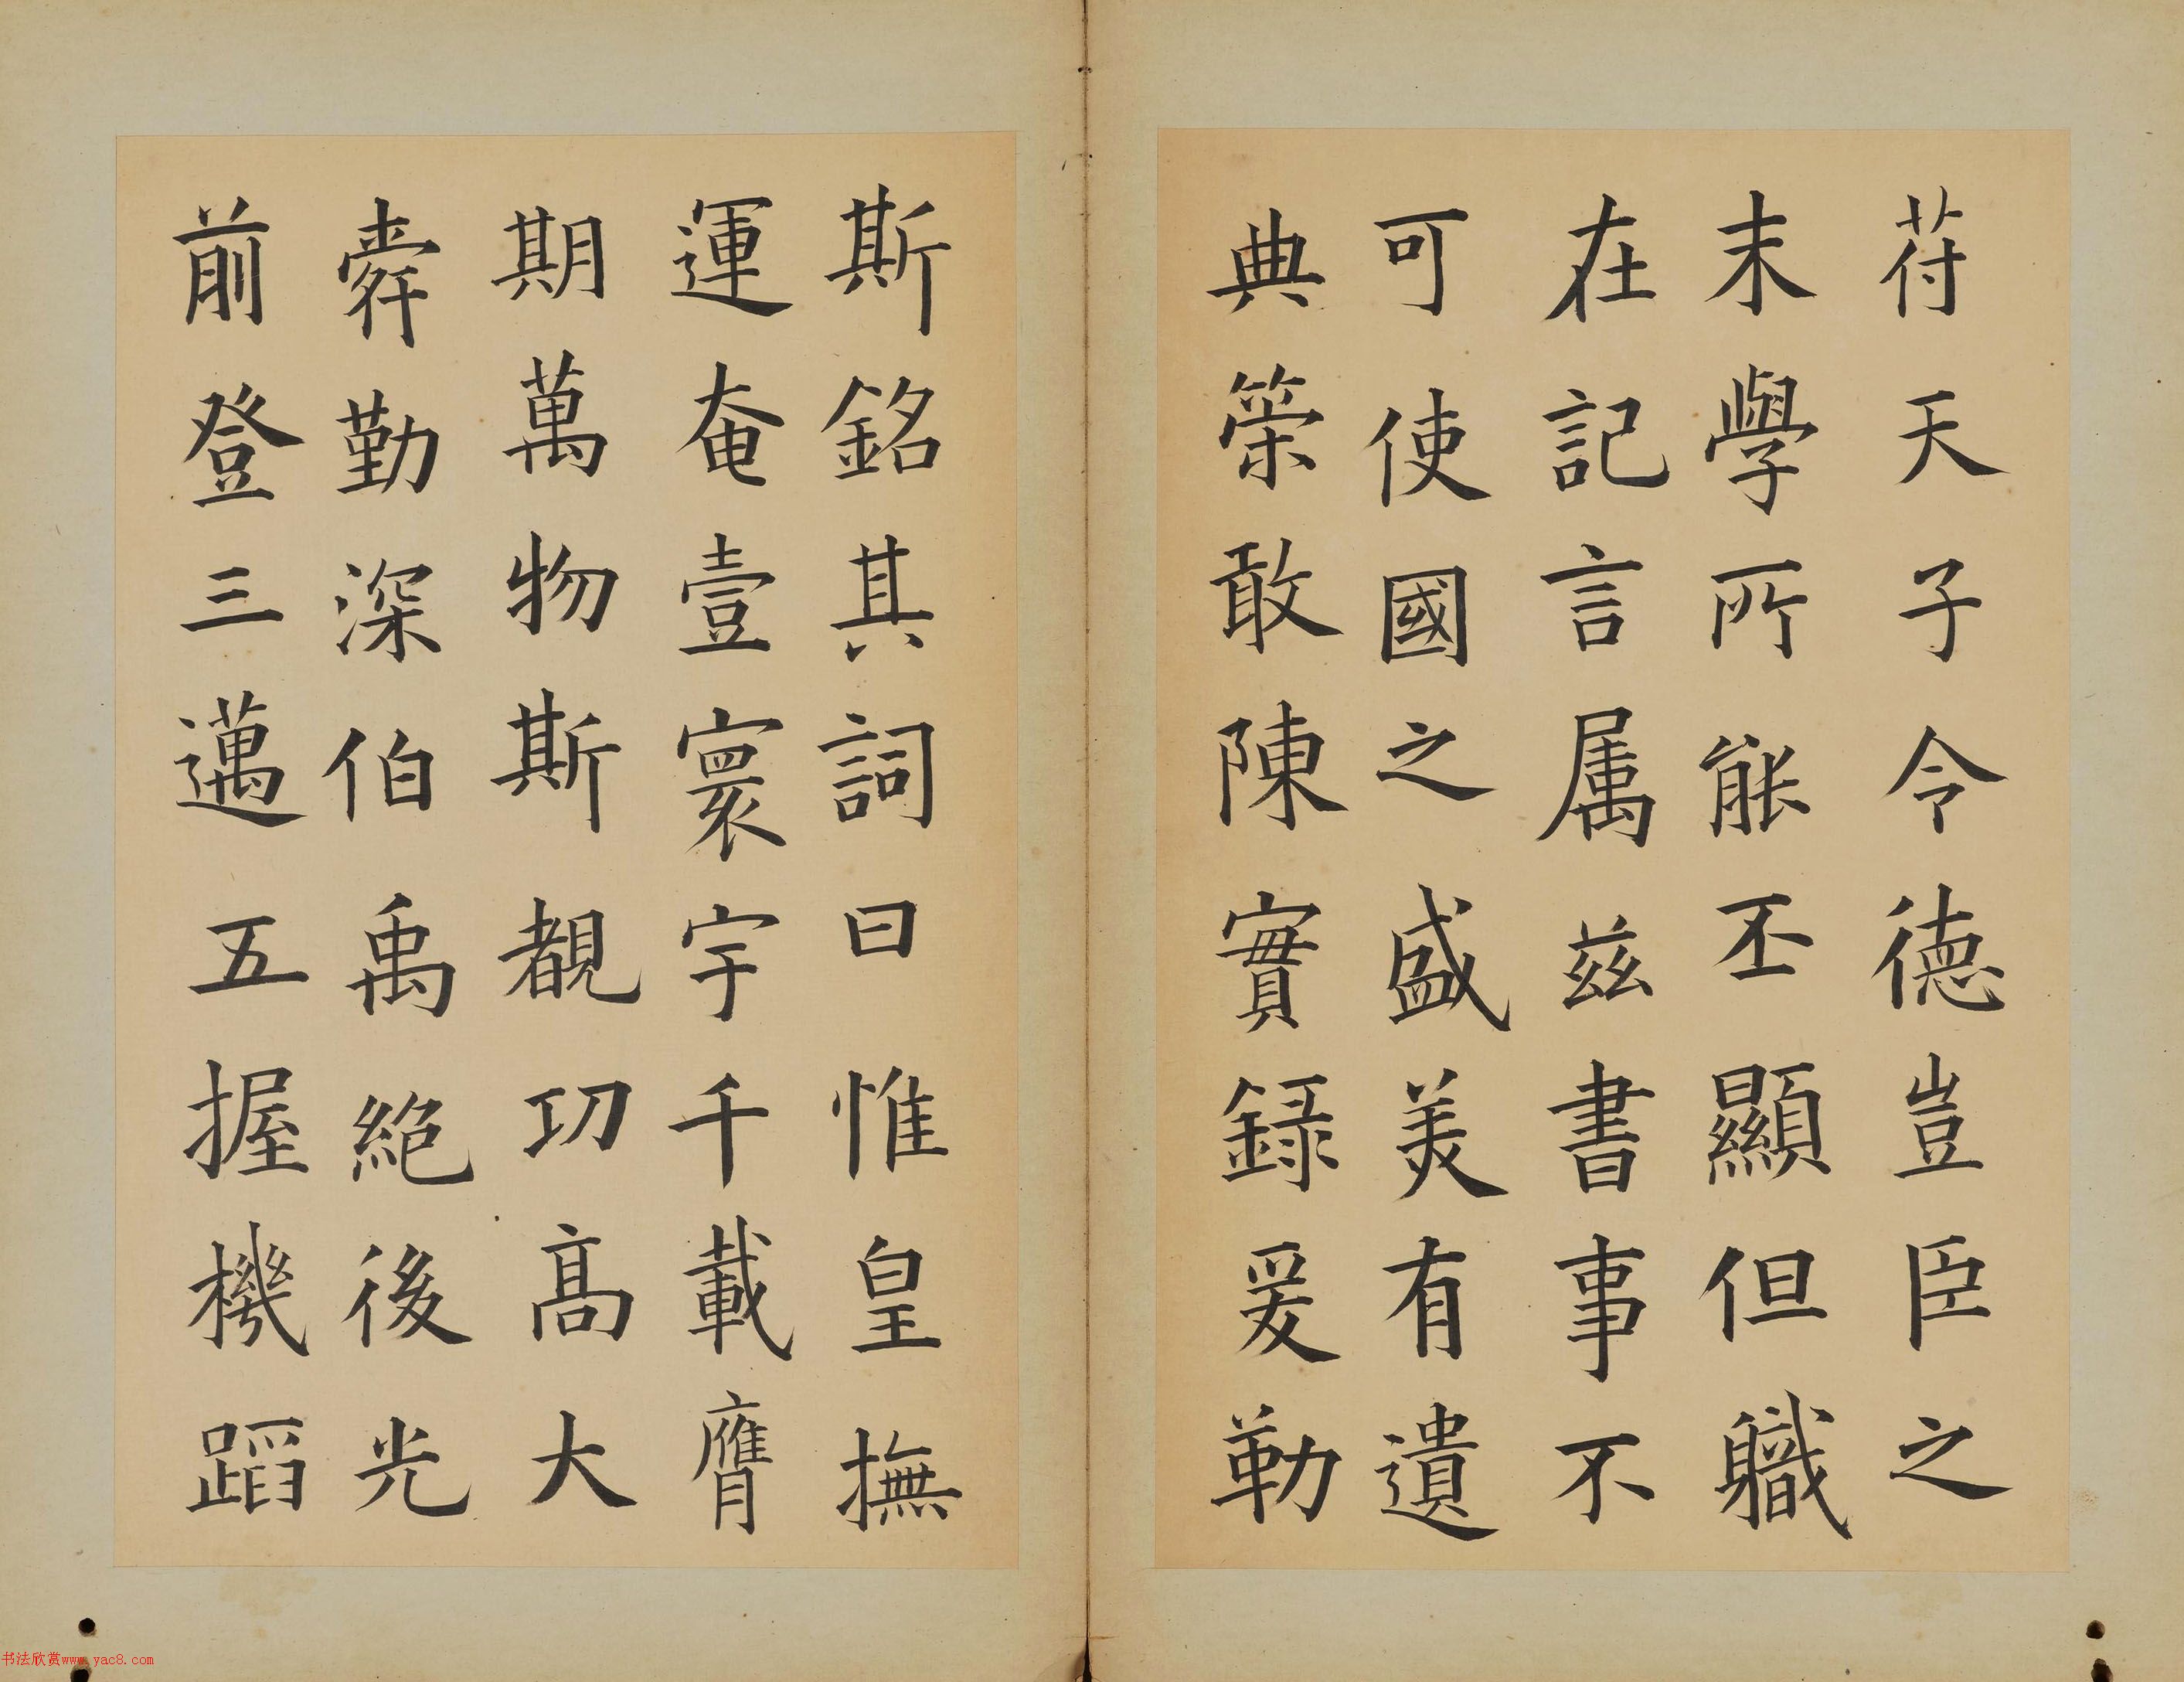 苻天子令德豈臣之
末學所能丕顯但職
在記言属兹書事不
可使國之盛美有遺
典策敢陳實録爰勒
斯銘其詞曰惟皇撫
運奄壹寰宇千載膺
期萬物斯覩功高大
舜勤深伯禹絶後光
前登三邁五握機蹈
书法欣赏www.yac8.com